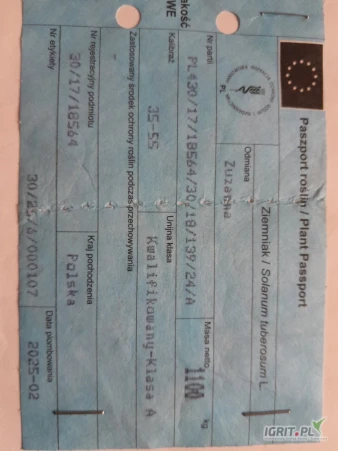 Paszport roślin / Plant Passport
Ziemniak / Solanum tuberosum L.
PL
Odmiana
Zuzanna
Nr partii
PL430/17/18564/30/18/139/24/A
Masa netto
1100 kg
Kalibraż
35-55
Unijna klasa
Kwalifikowany-Klasa A
Zastosowany środek ochrony roślin podczas przechowywania
Nr rejestracyjny podmiotu
30/17/18564
Kraj pochodzenia
Polska
Nr etykiety
30/25/4/000107
Data plombowania
2025-02
IGRIT.PL